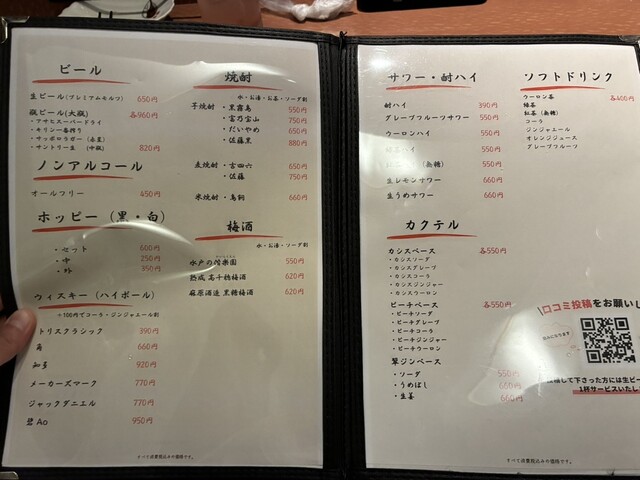 ビール
生ビール(プレミアムモルツ) 650円
瓶ビール(大瓶) 各960円
・アサヒスーパードライ
・キリン一番搾り
・サッポロラガー(赤星)
・サントリー生 (中瓶) 820円
ノンアルコール
オールフリー 450円
ホッピー(黒・白)
・セット 600円
・中 250円
・外 350円
ウィスキー(ハイボール)
※100円でコーラ・ジンジャエール割
トリスクラシック 390円
角 660円
知多 920円
メーカーズマーク 770円
ジャックダニエル 770円
碧Ao 950円
焼酎
水・お湯・お茶・ソーダ割
芋焼酎・黒霧島 550円
・富乃宝山 750円
・だいやめ 650円
・佐藤黒 880円
麦焼酎・吉四六 650円
・佐藤 750円
米焼酎・鳥飼 660円
梅酒
水・お湯・ソーダ割
水戸の偕楽園 550円
熟成 高千穂梅酒 620円
麻原酒造 黒糖梅酒 620円
すべて消費税込みの価格です。
サワー・酎ハイ
酎ハイ 390円
グレープフルーツサワー 550円
ウーロンハイ 550円
ハイ 550円
(無糖) 550円
生レモンサワー 660円
生うめサワー 660円
カクテル
カシスベース 各550円
・カシスソーダ
・カシスグレープ
・カシスコーラ
・カシスジンジャー
・カシスウーロン
ピーチベース 各550円
・ピーチソーダ
・ピーチグレープ
・ピーチコーラ
・ピーチジンジャー
・ピーチウーロン
翠ジンベース
・ソーダ 550円
・うめぼし 600円
・生姜 660円
すべて消費税込みの価格です。
ソフトドリンク
ウーロン茶 各400円
緑茶
紅茶(無糖)
コーラ
ジンジャエール
オレンジジュース
グレープフルーツ
口コミ投稿をお願いし
投稿して下さった方には生ビー
1杯サービスいたし